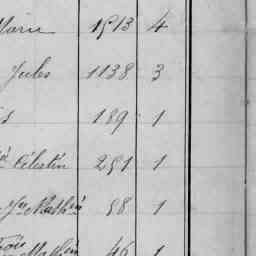 Marie 1513 4
Jules 1138 3
s 189 1
Célestin 291 1
Mathieu 88 1
46 1